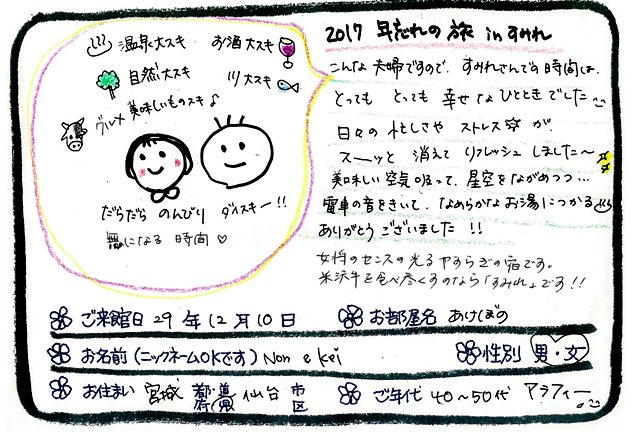 温泉大スキ お酒大スキ
自然大スキ 川大スキ
グルメ 美味しいものスキ♪
だらだら のんびり ダイスキー!!
無になる 時間♡
2017 年忘れの旅 in すみれ
こんな夫婦ですので、すみれさんでの時間は、
とっても とっても 幸せなひとときでした
日々の 忙しさや ストレス が、
スーッと 消えて リフレッシュ しました〜
美味しい空気吸って、星空をながめつつ…
電車の音をきいて、なめらかなお湯につかる
ありがとうございました !!
女将のセンスの光るやすらぎの宿です。
米沢牛を食べ尽くすのなら「すみれ」です!!
ご来館日 29 年 12 月 10 日 お部屋名 あけぼの
お名前(ニックネームOKです) Non & Kei 性別 男・女
お住まい 宮城 都・道 府・県 仙台 市 区 ご年代 40〜50代 アラフィー